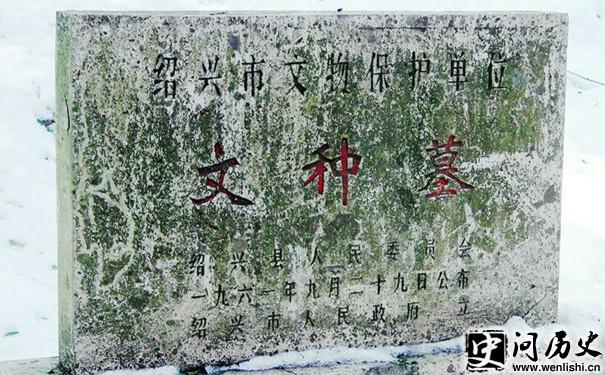 绍兴市文物保护单位
文种墓
绍兴县人民委员会
一九六一年九月二十九日公布
绍兴市人民政府立
史问历史
www.wenlishi.cn